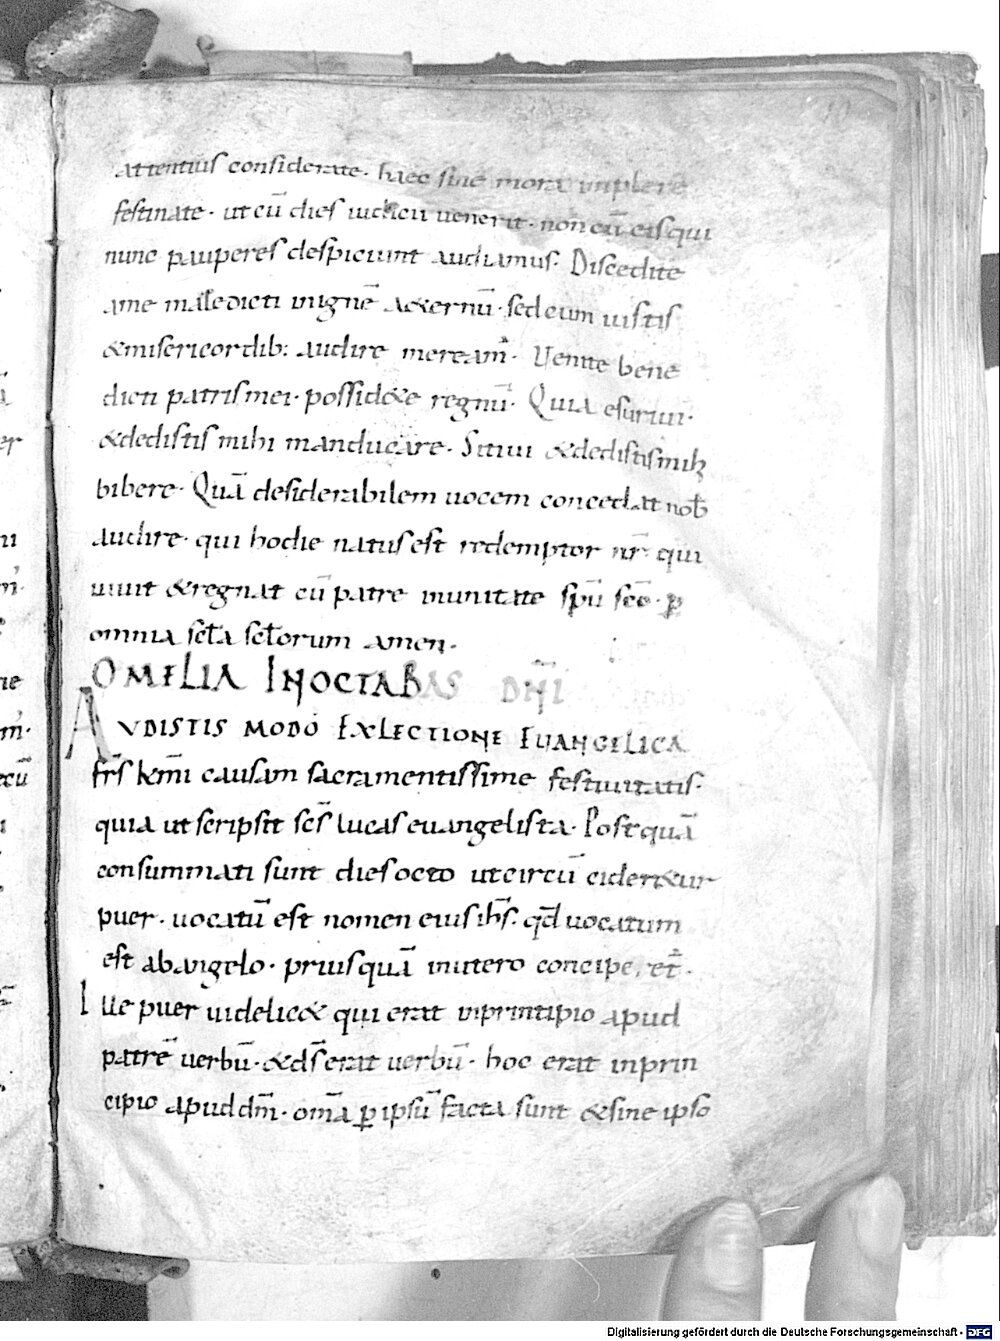 attentius considerate. haec sine mora implere
festinate. ut cū dies iudicii uenerit. non cū eis qui
nunc pauperes despiciunt audiamus. Discedite
a me maledicti inignē &ernū. sed cum iustis
& misericordib: audire meream̄. Uenite bene
dicti patris mei. possid&e regnū. Quia esuriui.
& dedistis mihi manducare. Sitiui & dedistis mihi
bibere. Quā desiderabilem uocem concedat nob̄
audire. qui hodie natus est redemptor nr̄. qui
uiuit & regnat cū patre inunitate sp̄u sc̄o. ꝑ
omnia scl̄a scl̄orum amen.
OMELIA IN OCTABAS DN̄I
AUDISTIS MODO EX LECTIONE EUANGELICA
fr̄s km̄i causam sacramentissime festiuitatis.
quia ut scripsit sc̄s lucas euangelista. Postquā
consummati sunt dies octo ut circū cider&ur
puer. uocatū est nomen eius ih̄s. qd̄ uocatum
est ab angelo. priusquā in utero concipe,et̄.
Ille puer uidelic& qui erat inprintipio apud
patrē uerbū. & ds̄ erat uerbū. hoc erat inprin
cipio apud dm̄. om̄a ꝑ ipsū facta sunt & sine ipso
Digitalisierung gefördert durch die Deutsche Forschungsgemeinschaft - DFG